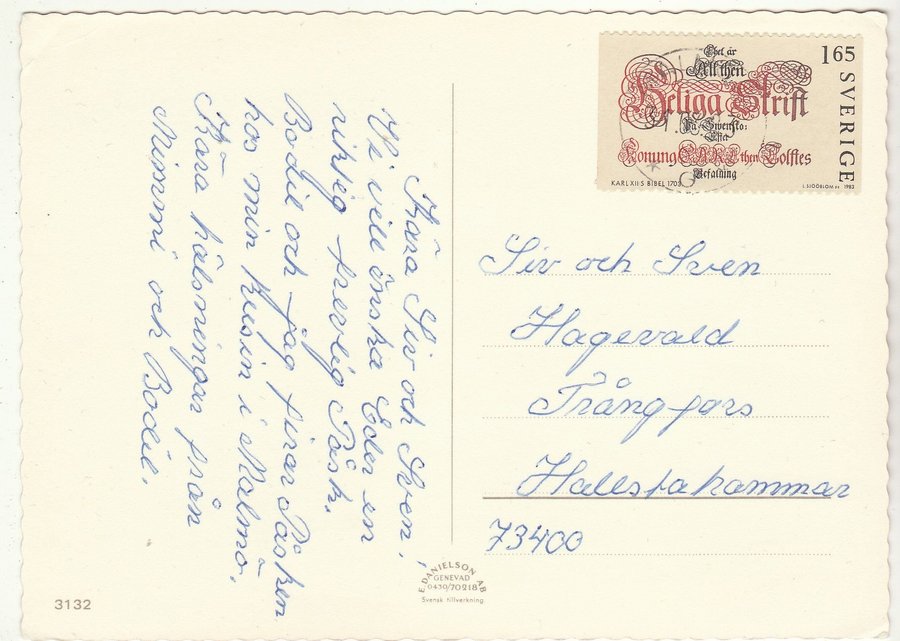 Kära Siv och Sven!
Vi vill önska Eder en
riktig trevlig Påsk.
Bodil och jag firar Påsken
hos min kusin i Malmö.
Kära hälsningar från
Mimmi och Bodil.
Thet är
All then
Heliga Skrift
På Swensko;
Efter
Konung CARL then Tolftes
Befalning
165
SVERIGE
KARL XII:S BIBEL 1703
L SJÖÖBLOM SC 1983
Siv och Sven
Hagevald
Trångfors
Hallstahammar
73400
E. DANIELSON AB
GENEVAD
0430/70218
Svensk tillverkning.
3132